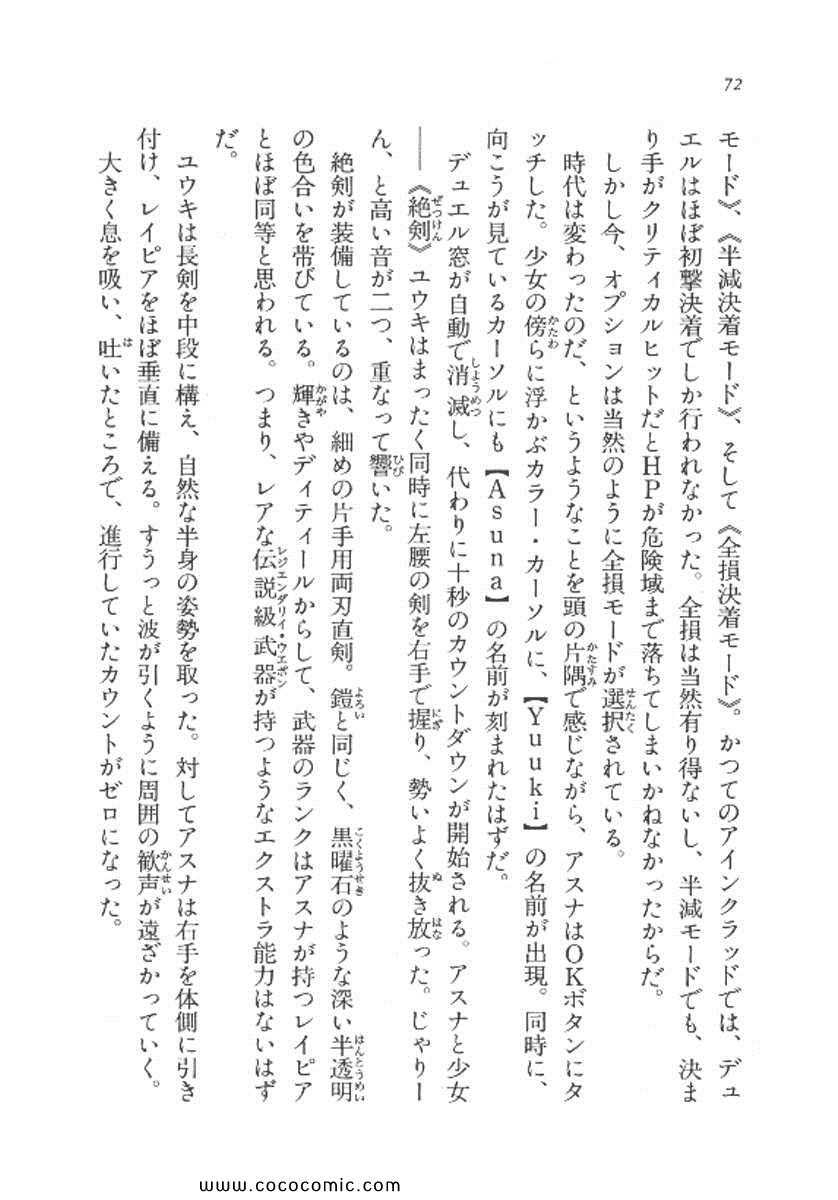 72
モード》、《半減決着モード》、そして《全損決着モード》。かつてのアインクラッドでは、デュ
エルはほぼ初撃決着でしか行われなかった。全損は当然有り得ないし、半減モードでも、決ま
り手がクリティカルヒットだとHPが危険域まで落ちてしまいかねなかったからだ。
しかし今、オプションは当然のように全損モードが選択されている。
時代は変わったのだ、というようなことを頭の片隅で感じながら、アスナはOKボタンにタ
ッチした。少女の傍らに浮かぶカラー・カーソルに、【Yuuki】の名前が出現。同時に、
向こうが見ているカーソルにも【Asuna】の名前が刻まれたはずだ。
デュエル窓が自動で消滅し、代わりに十秒のカウントダウンが開始される。アスナと少女
――《絶剣》ユウキはまったく同時に左腰の剣を右手で握り、勢いよく抜き放った。じゃりー
ん、と高い音が二つ、重なって響いた。
絶剣が装備しているのは、細めの片手用両刃直剣。鎧と同じく、黒曜石のような深い半透明
の色合いを帯びている。輝きやディティールからして、武器のランクはアスナが持つレイピア
とほぼ同等と思われる。つまり、レアな伝説級武器が持つようなエクストラ能力はないはず
だ。
ユウキは長剣を中段に構え、自然な半身の姿勢を取った。対してアスナは右手を体側に引き
付け、レイピアをほぼ垂直に備える。すうっと波が引くように周囲の歓声が遠ざかっていく。
大きく息を吸い、吐いたところで、進行していたカウントがゼロになった。
www.cococomic.com